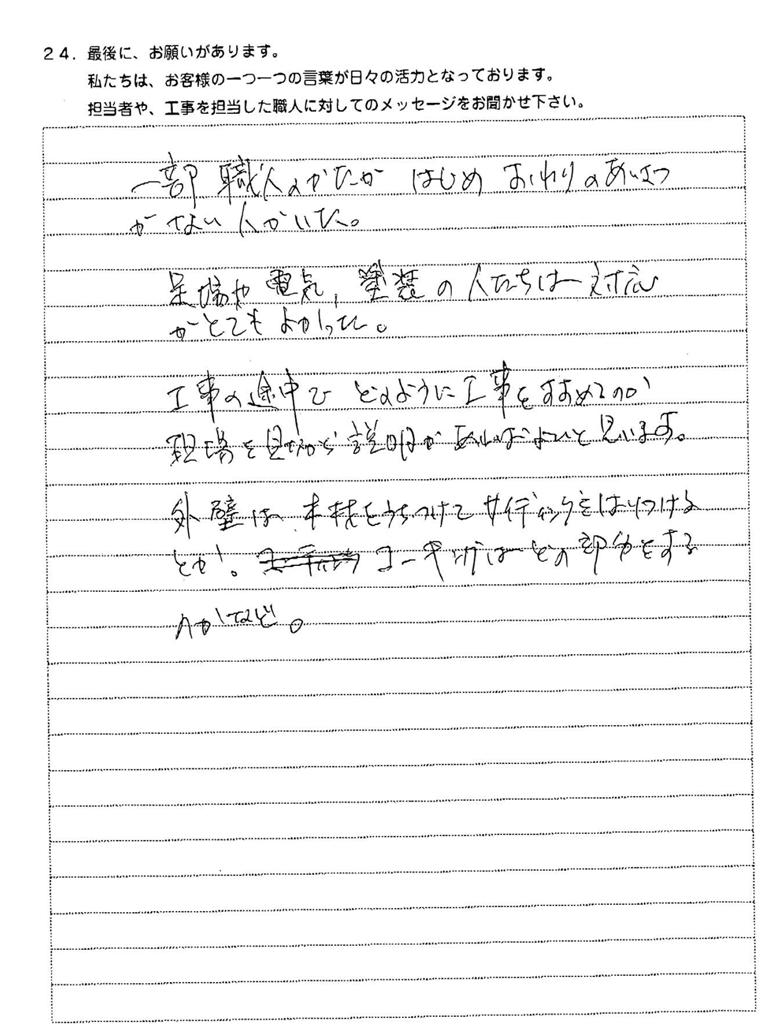 24. 最後に、お願いがあります。
私たちは、お客様の一つ一つの言葉が日々の活力となっております。
担当者や、工事を担当した職人に対してのメッセージをお聞かせ下さい。
一部 職人のかたが はじめ おわりのあいさつ
がない人がいた。
足場や電気,塗装の人たちは対応
がとてもよかった。
工事の途中で どのように工事をすすめてるのか
現場を見ながら説明があればよいと思います。
外壁は、木材をうちつけてサイディングをはりつける
とか。コーキングはどの部分をする
のかなど。